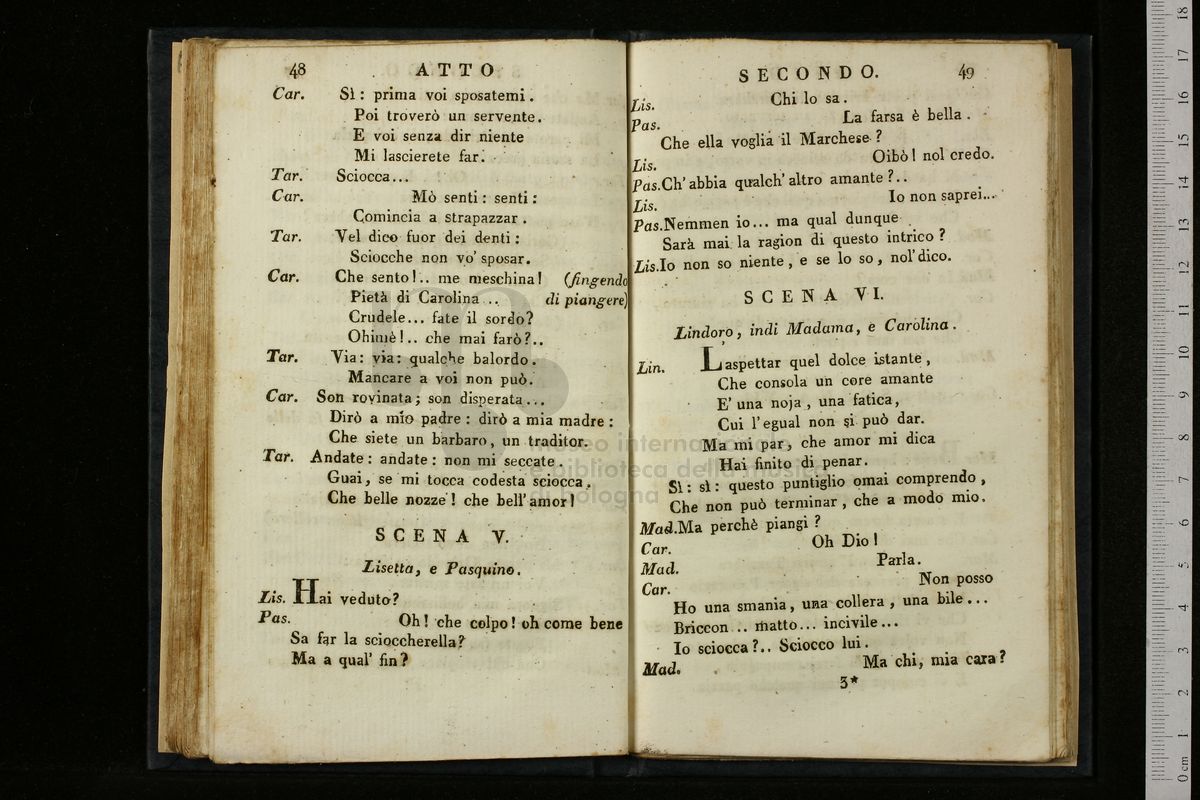 48 ATTO
Car. Sì: prima voi sposatemi.
Poi troverò un servente.
E voi senza dir niente
Mi lascierete far.
Tar. Sciocca...
Car. Mò senti: senti:
Comincia a strapazzar.
Tar. Vel dico fuor dei denti:
Sciocche non vo' sposar.
Car. Che sento!.. me meschina! (fingendo
Pietà di Carolina .. di piangere)
Crudele... fate il sordo?
Ohimè!.. che mai farò?..
Tar. Via: via: qualche balordo.
Mancare a voi non può.
Car. Son rovinata; son disperata...
Dirò a mio padre: dirò a mia madre:
Che siete un barbaro, un traditor.
Tar. Andate: andate: non mi seccate.
Guai, se mi tocca codesta sciocca.
Che belle nozze! che bell'amor!
SCENA V.
Lisetta, e Pasquino.
Lis. Hai veduto?
Pas. Oh! che colpo! oh come bene
Sa far la scioccherella?
Ma a qual' fin?
SECONDO. 49
Lis. Chi lo sa.
Pas. La farsa è bella.
Che ella voglia il Marchese?
Lis. Oibò! nol credo.
Pas. Ch'abbia qualch'altro amante?..
Lis. Io non saprei...
Pas. Nemmen io... ma qual dunque
Sarà mai la ragion di questo intrico?
Lis. Io non so niente, e se lo so, nol' dico.
SCENA VI.
Lindoro, indi Madama, e Carolina.
Lin. L'aspettar quel dolce istante,
Che consola un core amante
E' una noja, una fatica,
Cui l'egual non si può dar.
Ma mi par, che amor mi dica
Hai finito di penar.
Sì: sì: questo puntiglio omai comprendo,
Che non può terminar, che a modo mio.
Mad. Ma perchè piangi?
Car. Oh Dio!
Mad. Parla.
Car. Non posso
Ho una smania, una collera, una bile...
Briccon .. matto... incivile...
Io sciocca?.. Sciocco lui.
Mad. Ma chi, mia cara?
3*
museo internazionale
e biblioteca della musica
di bologna
0 cm 1 2 3 4 5 6 7 8 9 10 11 12 13 14 15 16 17 18